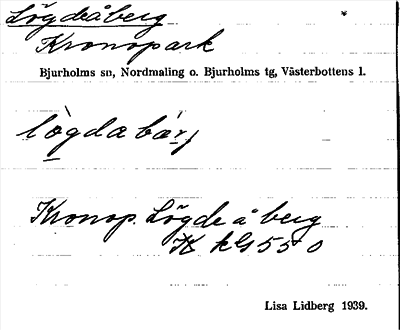 Lögdeåberg *
Kronopark
Bjurholms sn, Nordmaling o. Bjurholms tg, Västerbottens l.
lògdabär)
Kronop. Lögde å berg
K kG 55 0
Lisa Lidberg 1939.